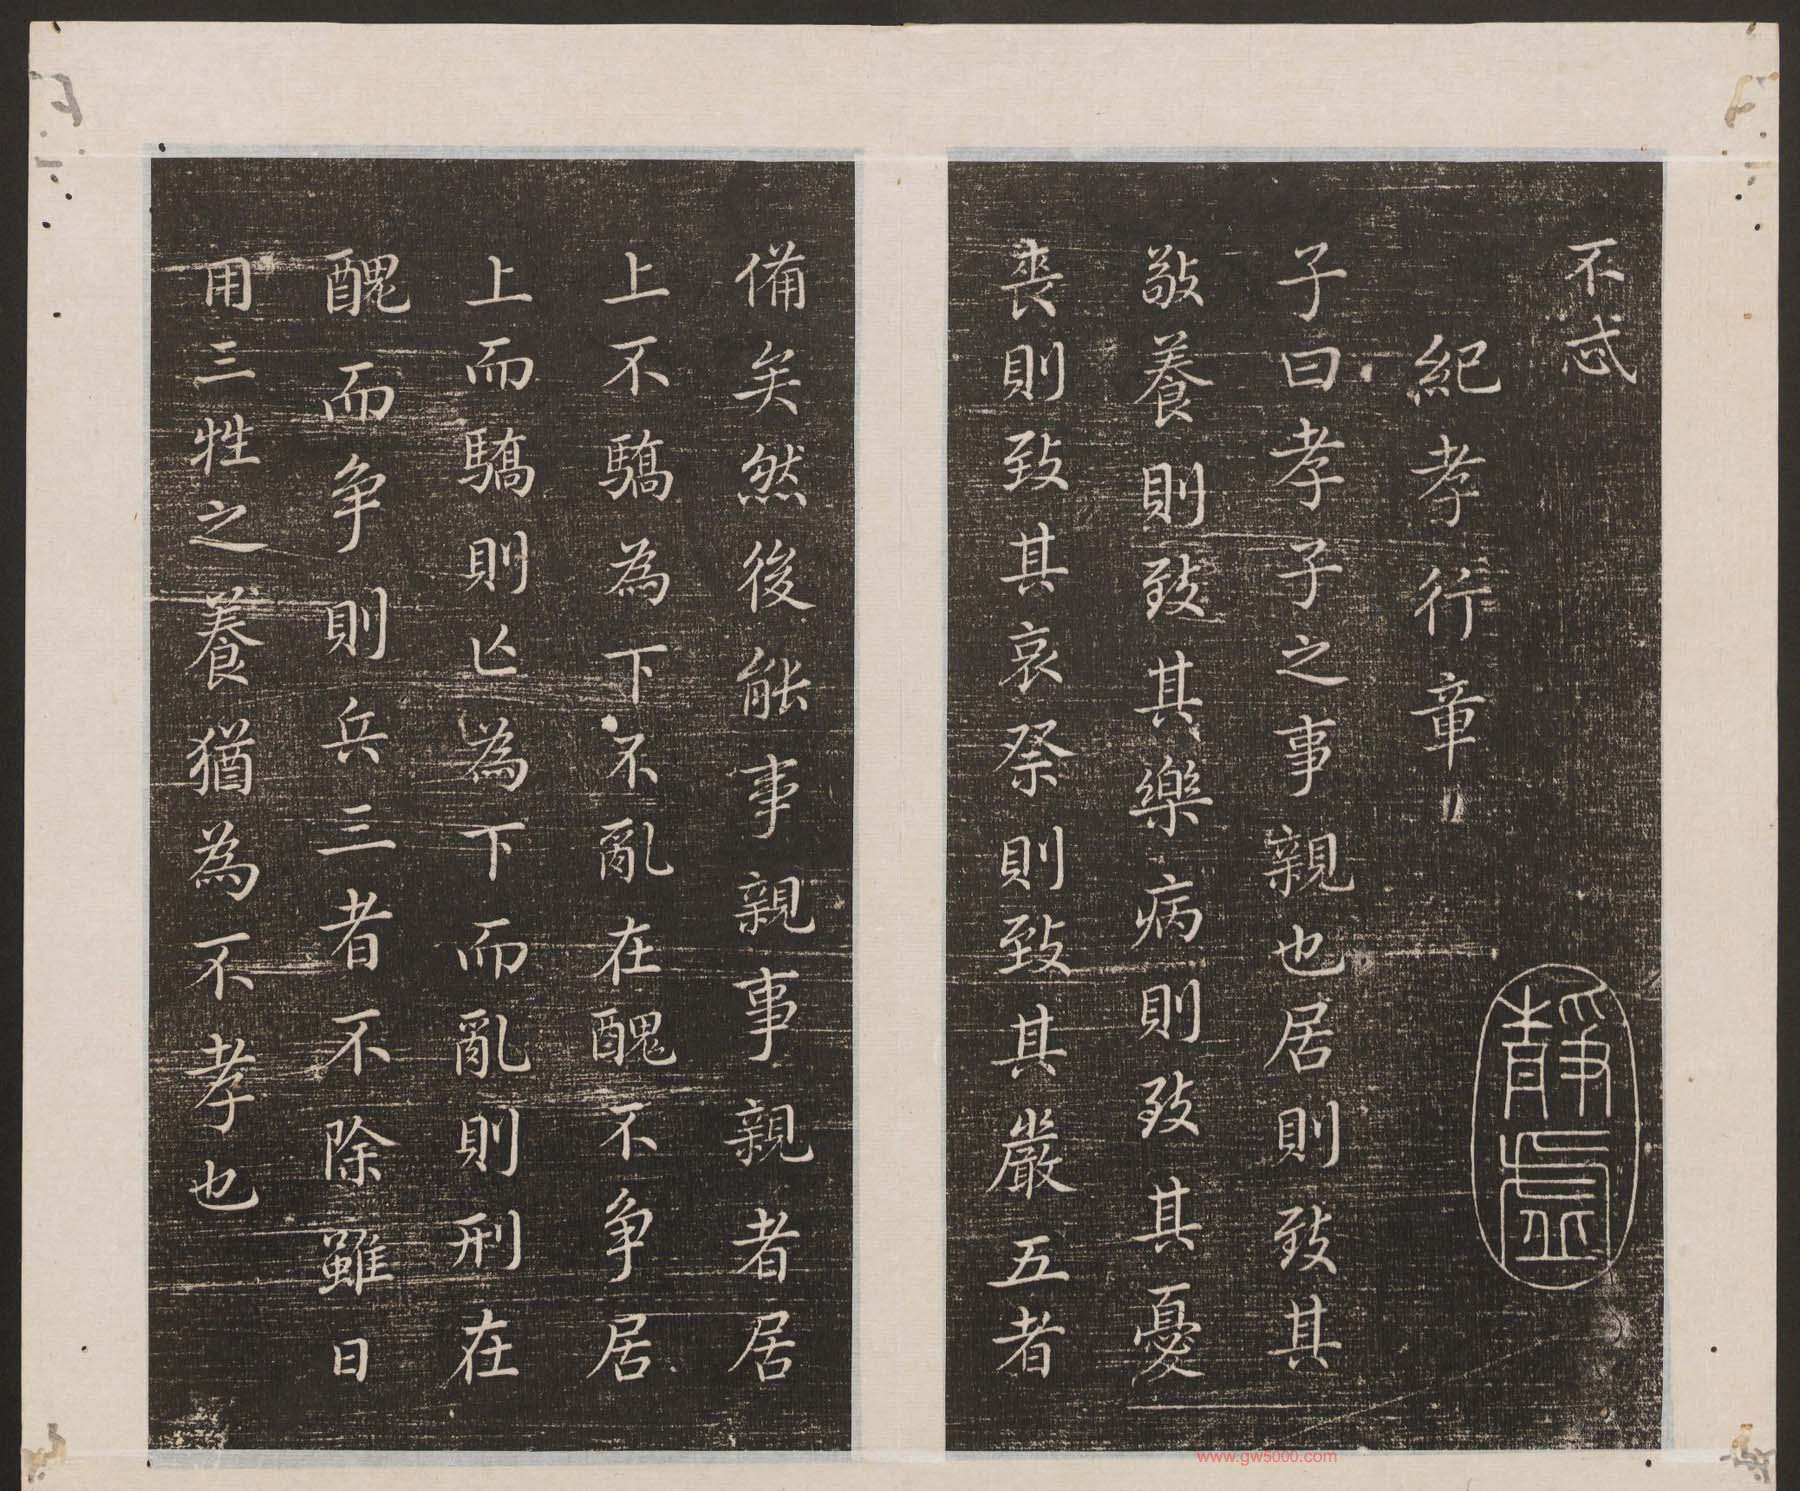 不忒
紀孝行章
子曰孝子之事親也居則致其
敬養則致其樂病則致其憂
喪則致其哀祭則致其嚴五者
備矣然後能事親事親者居
上不驕為下不亂在醜不争居
上而驕則亾為下而亂則刑在
醜而争則兵三者不除雖日
用三牲之養猶為不孝也
靜虛
www.gw5000.com